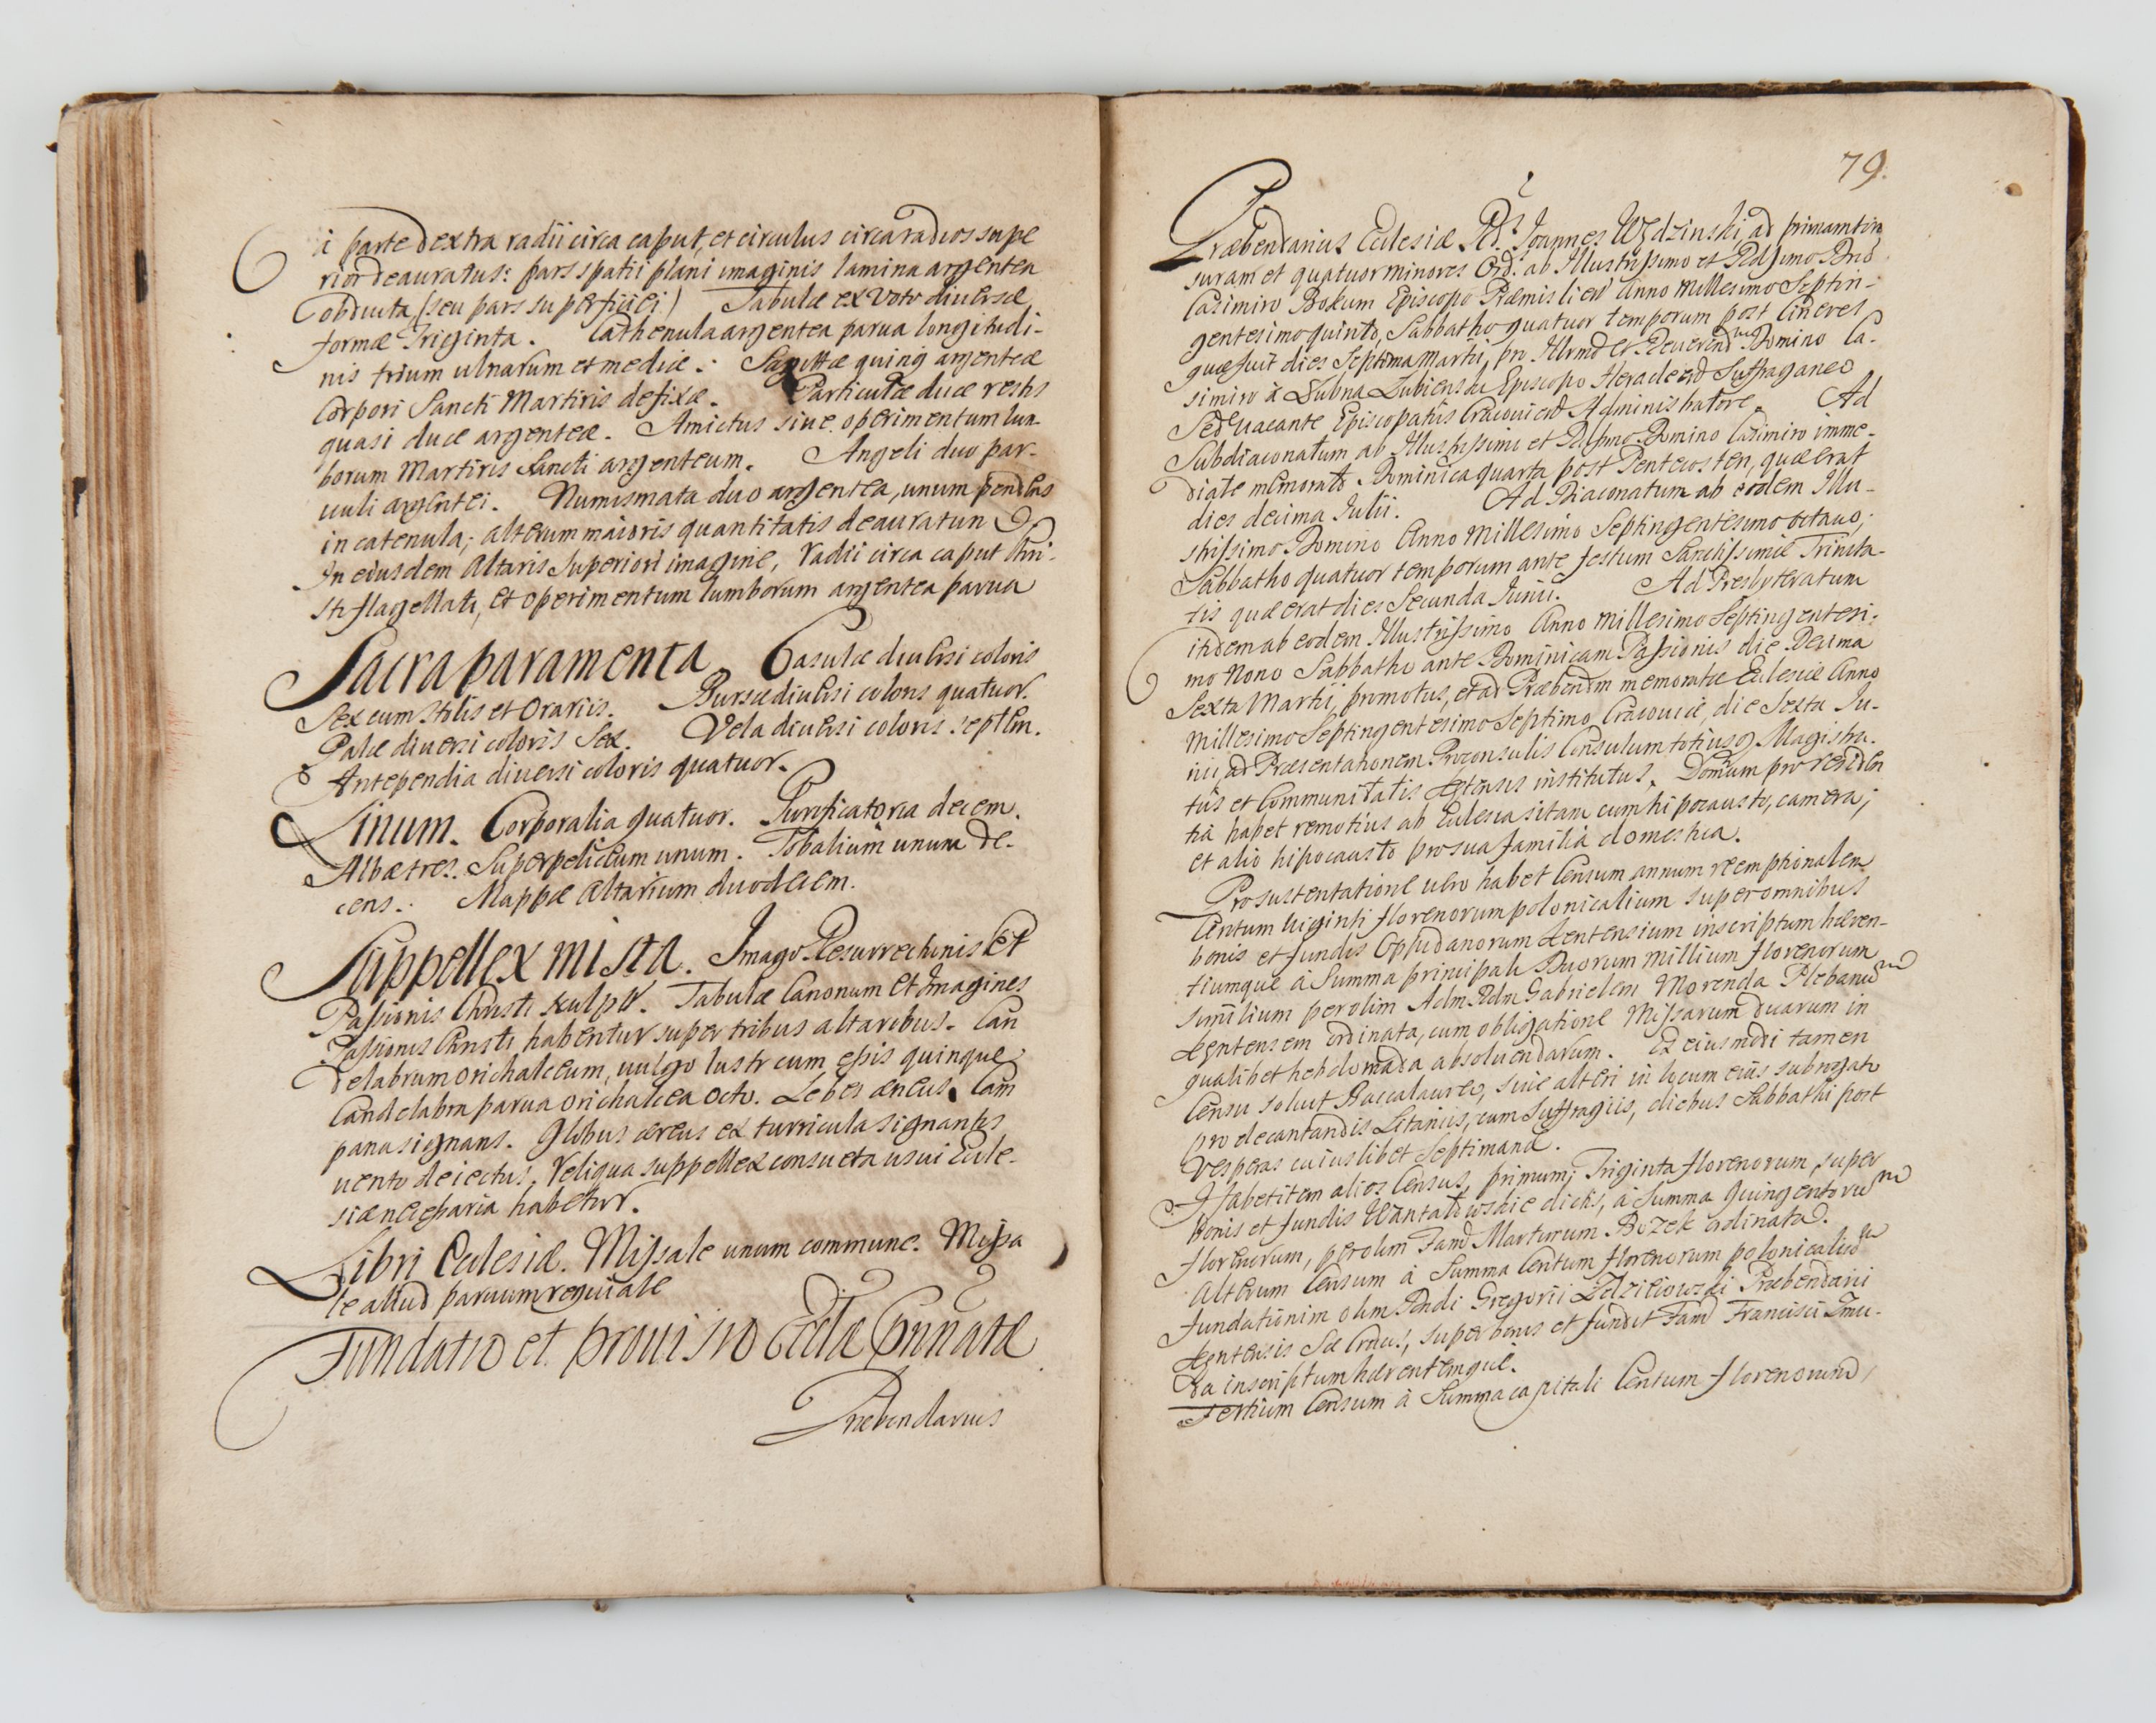 à parte dextra radii circa caput, et circulus circa radios supe
rior deauratus: pars spatii plani imaginis lamina argentea
obducta (seu pars superficiei) Tabulæ ex voto diversæ
formæ Triginta. Cathenula argentea parva longitudi-
nis trium ulnarum et mediæ: Sagittæ quinq argenteæ
Corpori Sancti Martiris defixæ. Particulæ duæ restis
quasi duæ argenteæ. Amictus sive operimentum lum
borum Martiris Sancti argenteum. Angeli duo par-
vuli argentei. Numismata duo argentea, unum pendens
in catenula; alterum maioris quantitatis deauratum
In eiusdem Altaris Superiori imagine, radii circa caput Chri-
sti flagellati, et operimentum lumborum argentea parva
Sacra paramenta. Casulæ diversi coloris
Sex cum Stolis et Orariis. Bursæ diversi coloris quatuor.
Palæ diversi coloris Sex. Vela diversi coloris septem.
Antependia diversi coloris quatuor.
Linum. Corporalia quatuor. Purificatoria decem.
Albæ tres. Superpeliceum unum. Tobalium unum de-
cens. Mappæ Altarium duodecem.
Suppellex mista. Imago Resurrectionis et
Passionis Christi sculptæ. Tabulæ Canonum et Imagines
Passionis Christi, habentur super tribus altaribus. Can
delabrum orichalceum, vulgo lustr cum episquinque
Candelabra parva orichalcea octo. Lebes æneus. Cam
pana signans. Globus æreus ex turricula signantis
vento deiectus. reliqua suppellex consueta usui Eccle-
siæ necessaria habetur.
Libri Ecclesiæ. Missale unum commune. Missa
le aliud parvum requiale
Fundatio et provisio Eccliæ
Præbendarius
79.
Præbendarius Ecclesiæ Joannes ad primam ton
suram et quatuor minores Ord. ab Illustrissimo et
Casimiro Bokum Episcopo Præmislien Anno Millesimo Septin-
gentesimo quinto, Sabbatho quatuor temporum post Cineres
quæ fuit dies Septima Martii, pn Illrmd et Reverend Domino Ca-
simiro à Lubna Lubienski Episcopo Heracleen Suffraganeo
Sede vacante Episcopatus Cracovien Administratore. Ad
Subdiaconatum ab Illustrissimo et Domino Casimiro imme-
diate memorato Dominica quarta post Pentecosten, quæ erat
dies decima Julii. Ad Diaconatum ab eodem Illu-
strissimo Domino Anno Millesimo Septingentesimo octavo,
Sabbatho quatuor temporum ante festum Sanctissimæ Trinita-
tis quæ erat dies Secunda Junii. Ad Presbyteratum
itidem ab eodem Illustrissimo Anno Millesimo Septingentesi-
mo Nono Sabbatho ante Dominicam Passionis die Decima
Sexta Martii, promotus, et ad Præbendam memoratæ Ecclesiæ Anno
Millesimo Septingentesimo Septimo Cracoviæ, die Sexta Ju-
nii, ad Præsentationem Proconsulis Consulum totiusq Magistra-
tus et Communitatis institutus. Domum pro residen
tia habet remotius ab Ecclesia sitam cum hipocausto, camera;
et alio hipocausto pro sua familia domestica.
Pro sustentatione vero habet Censum annum reemptionalem
Centum viginti florenorum polonicalium super omnibus
bonis et fundis Oppidanorum inscriptum hæren-
tiumque à Summa principali Duorum millium florenorum
similium per olim Adm Rdm Gabrielem Morenda Plebanum
ordinata, cum obligatione Missarum duarum in
qualibet hebdomada absolvendarum. Ex eiusmodi tamen
Censu solvit Baccalaureo, sive alteri in locum eius subrogato
pro decantandis Litaniis, cum Suffragiis, diebus Sabbathi post
Vesperas cuiuslibet Septimanæ.
Habet item alios Census, primum; Triginta florenorum super
bonis et fundis dictis, à Summa Quingentorum
florenorum, per olim Famd Martinum Bozek ordinata.
Alterum Censum à Summa Centum florenorum polonicalium
fundationum olim Rndi Gregorii Præbendarii
S Crucis, super bonis et fundis Famd Francisci
da inscriptum hærentemque.
Tertium Censum à Summa capitali Centum florenorum